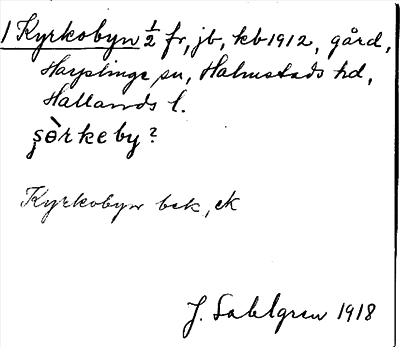 1 Kyrkobyn ½ fr, jb, kb 1912, gård,
Harplinge sn, Halmstads hd,
Hallands l.
şòrkeby?
Kyrkobyn bek, ek
J. Sahlgren 1918